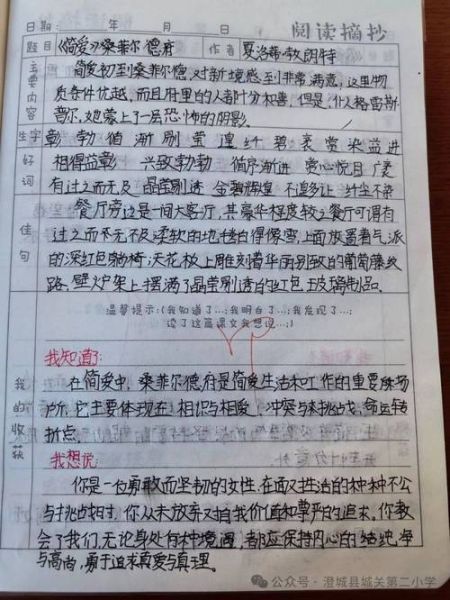 日期 年 月 日 阅读摘抄
题目 《简爱》桑菲尔德府 作者 夏洛蒂·勃朗特
主要内容
简爱初到桑菲尔德,对新境感到非常满意,这里物
质条件优越,而且府里的人都十分和善,但是,仆人格雷斯
普尔,她蒙上了一层恐怖的阴影。
生字 彰 勃 循 渐 剔 莹 遑 纤 碧 衰 蛍 染 益 进
好词
相得益彰 兴致勃勃 循序渐进 赏心悦目
有过之而无及 晶莹剔透 金碧辉煌 不遑多让 纤尘不染
佳句
餐厅旁边是一间大客厅,其豪华程度较之餐厅可谓有
过之而不无不及柔软的地毯白得像雪,上面放置着气派
的深红色躺椅;天花板上雕刻着华丽别致的葡萄藤纹
路.壁炉架上摆满了晶莹剔透的红色玻璃制品。
温馨提示:(我知道了…;我明白了…;我发现了…;
读了这篇课文我想说…;)
我的收获
我知道了:
在简爱中,桑菲尔德府是简爱生活和工作的重要场
所,它主要体现在相识与相爱、冲突与挑战、命运转
折点.
我想说:
你是一位勇敢而坚韧的女性,在面对生活的种种不公
与挑战时,你从未放弃对自我价值和尊严的追求。你教
会了我们,无论身处何种境遇,都应保持内心的纯净
与高尚,勇于追求真爱与真理。
公众号·澄城县城关第二小学